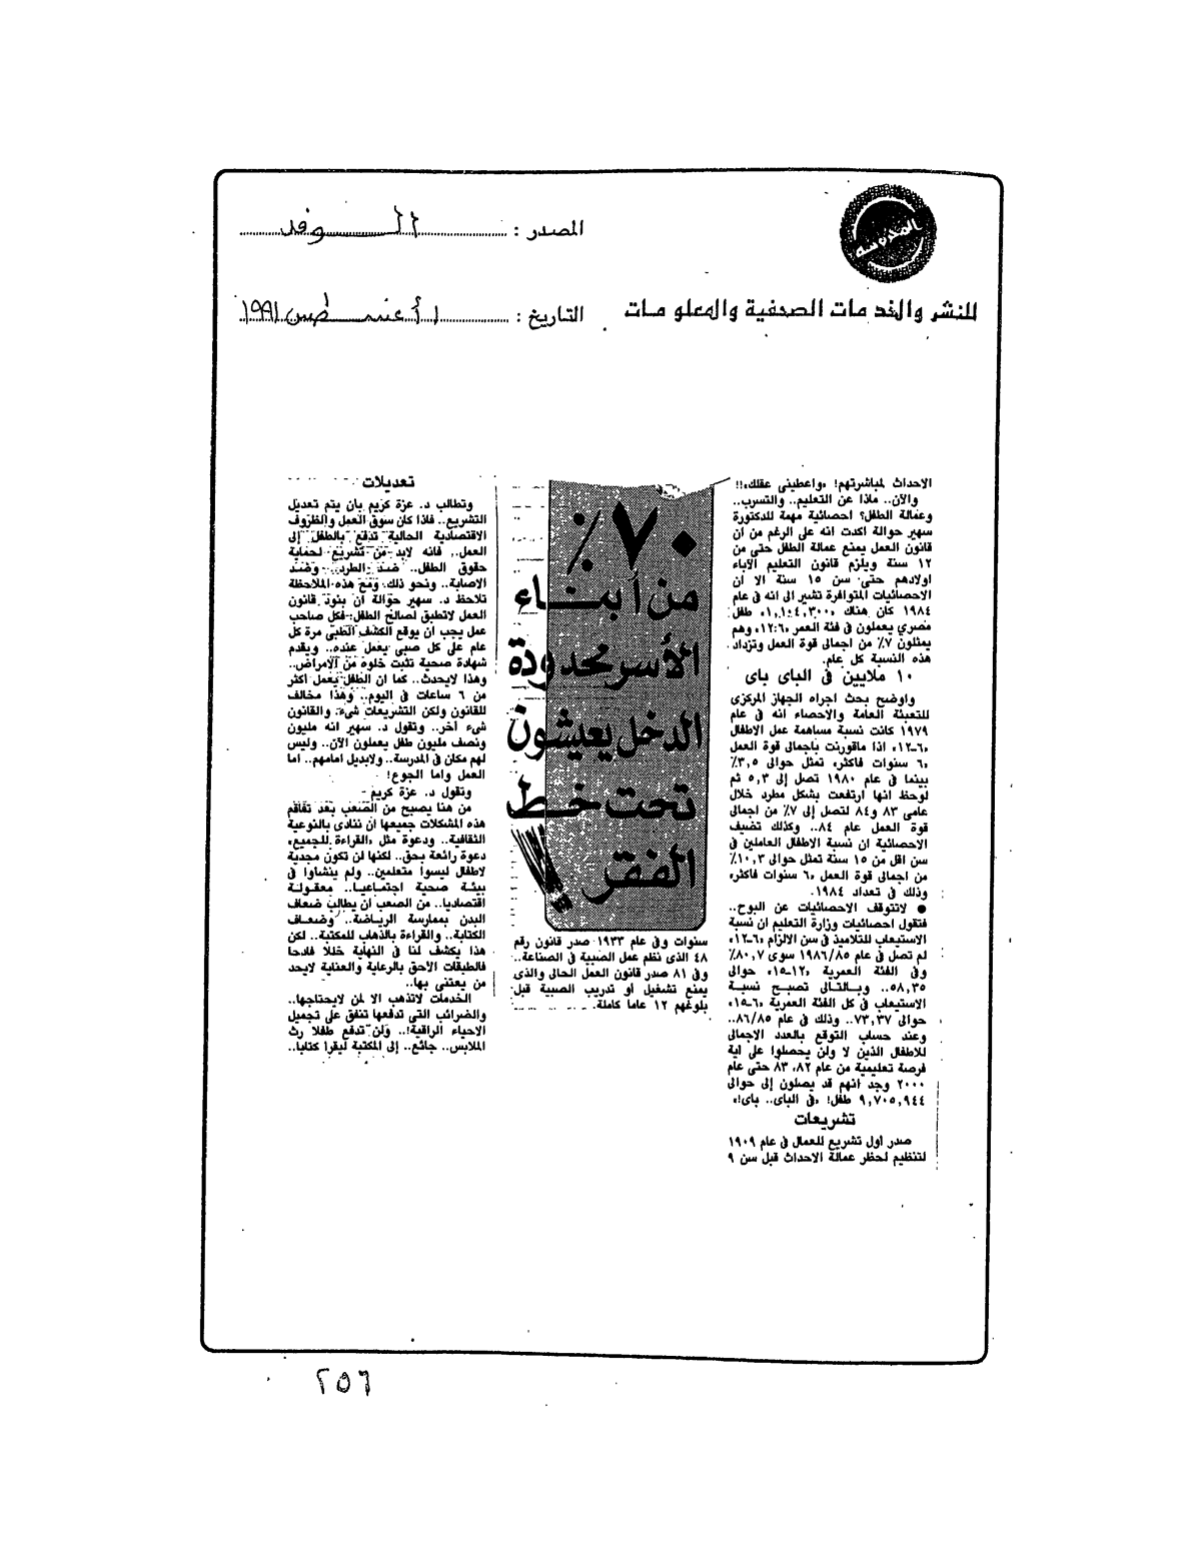 المحروسه
للنشر والخدمات الصحفية والمعلومات
المصدر : الوفد
التاريخ : ١ أغسطس ١٩٩١
الاحداث لمباشرتهم! «واعطينى عقلك»!!
والآن.. ماذا عن التعليم.. والتسرب..
وعمالة الطفل؟ احصائية مهمة للدكتورة
سهير حوالة اكدت انه على الرغم من ان
قانون العمل يمنع عمالة الطفل حتى من
١٢ سنة ويلزم قانون التعليم الآباء
اولادهم حتى سن ١٥ سنة الا ان
الاحصائيات المتوافرة تشير الى انه فى عام
١٩٨٤ كان هناك «١,١٠٤,٣٠٠» طفل
مصري يعملون فى فئة العمر «١٢:٦» وهم
يمثلون ٧٪ من اجمالى قوة العمل وتزداد
هذه النسبة كل عام.
١٠ ملايين فى الباى باى
واوضح بحث اجراه الجهاز المركزى
للتعبئة العامة والاحصاء انه فى عام
١٩٧٩ كانت نسبة مساهمة عمل الاطفال
«٦-١٢» اذا ماقورنت باجمالى قوة العمل
«٦ سنوات فاكثر» تمثل حوالى ٣,٥٪
بينما فى عام ١٩٨٠ تصل إلى ٥,٣ ثم
لوحظ انها ارتفعت بشكل مطرد خلال
عامى ٨٣ و٨٤ لتصل إلى ٧٪ من اجمالى
قوة العمل عام ٨٤.. وكذلك تضيف
الاحصائية ان نسبة الاطفال العاملين فى
سن اقل من ١٥ سنة تمثل حوالى ١٠,٣٪
من اجمالى قوة العمل «٦ سنوات فاكثر»
وذلك فى تعداد ١٩٨٤.
● لاتتوقف الاحصائيات عن البوح..
فتقول احصائيات وزارة التعليم ان نسبة
الاستيعاب للتلاميذ فى سن الالزام «٦-١٢»
لم تصل فى عام ١٩٨٦/٨٥ سوى ٨٠,٧٪
وفى الفئة العمرية «١٢-١٥» حوالى
٥٨,٣٥.. وبالتالى تصبح نسبة
الاستيعاب فى كل الفئة العمرية «٦-١٥»
حوالى ٧٣,٣٧.. وذلك فى عام ٨٦/٨٥..
وعند حساب التوقع بالعدد الاجمالى
للاطفال الذين لا ولن يحصلوا على اية
فرصة تعليمية من عام ٨٢، ٨٣ حتى عام
٢٠٠٠ وجد انهم قد يصلون إلى حوالى
٩,٧٠٥,٩٤٤ طفل! «فى الباى.. باى!»
تشريعات
صدر اول تشريع للعمال فى عام ١٩٠٩
لتنظيم لحظر عمالة الاحداث قبل سن ٩
٧٠٪
من أبناء
الأسر محدودة
الدخل يعيشون
تحت خط
الفقر
سنوات وفى عام ١٩٣٣ صدر قانون رقم
٤٨ الذى نظم عمل الصبية فى الصناعة..
وفى ٨١ صدر قانون العمل الحالى والذى
يمنع تشغيل أو تدريب الصبية قبل
بلوغهم ١٢ عاما كاملة.
تعديلات
وتطالب د. عزة كريم بان يتم تعديل
التشريع.. فاذا كان سوق العمل والظروف
الاقتصادية الحالية تدفع بالطفل إلى
العمل.. فانه لابد من تشريع لحماية
حقوق الطفل.. ضد الطرد.. وضد
الاصابة.. ونحو ذلك، ومع هذه الملاحظة
تلاحظ د. سهير حوالة ان بنود قانون
العمل لاتطبق لصالح الطفل: فكل صاحب
عمل يجب ان يوقع الكشف الطبى مرة كل
عام على كل صبى يعمل عنده.. ويقدم
شهادة صحية تثبت خلوه من الامراض..
وهذا لايحدث.. كما ان الطفل يعمل أكثر
من ٦ ساعات فى اليوم.. وهذا مخالف
للقانون ولكن التشريعات شىء.. والقانون
شىء آخر.. وتقول د. سهير انه مليون
ونصف مليون طفل يعملون الآن.. وليس
لهم مكان فى المدرسة.. ولابديل امامهم.. اما
العمل واما الجوع!
وتقول د. عزة كريم -
من هنا يصبح من الصعب بعد تفاقم
هذه المشكلات جميعها ان ننادى بالنوعية
الثقافية.. ودعوة مثل «القراءة للجميع»
دعوة رائعة بحق.. لكنها لن تكون مجدية
لاطفال ليسوا متعلمين.. ولم ينشاوا فى
بيئة صحية اجتماعيا.. معقولة
اقتصاديا.. من الصعب ان يطالب ضعاف
البدن بممارسة الرياضة.. وضعاف
الكتابة.. والقراءة بالذهاب للمكتبة.. لكن
هذا يكشف لنا فى النهاية خللا فادحا
فالطبقات الاحق بالرعاية والعناية لايجد
من يعتنى بها..
الخدمات لاتذهب الا لمن لايحتاجها..
والضرائب التى تدفعها تنفق على تجميل
الاحياء الراقية!.. ولن تدفع طفلا رث
الملابس.. جائع.. إلى المكتبة ليقرا كتابا..
٢٥٦